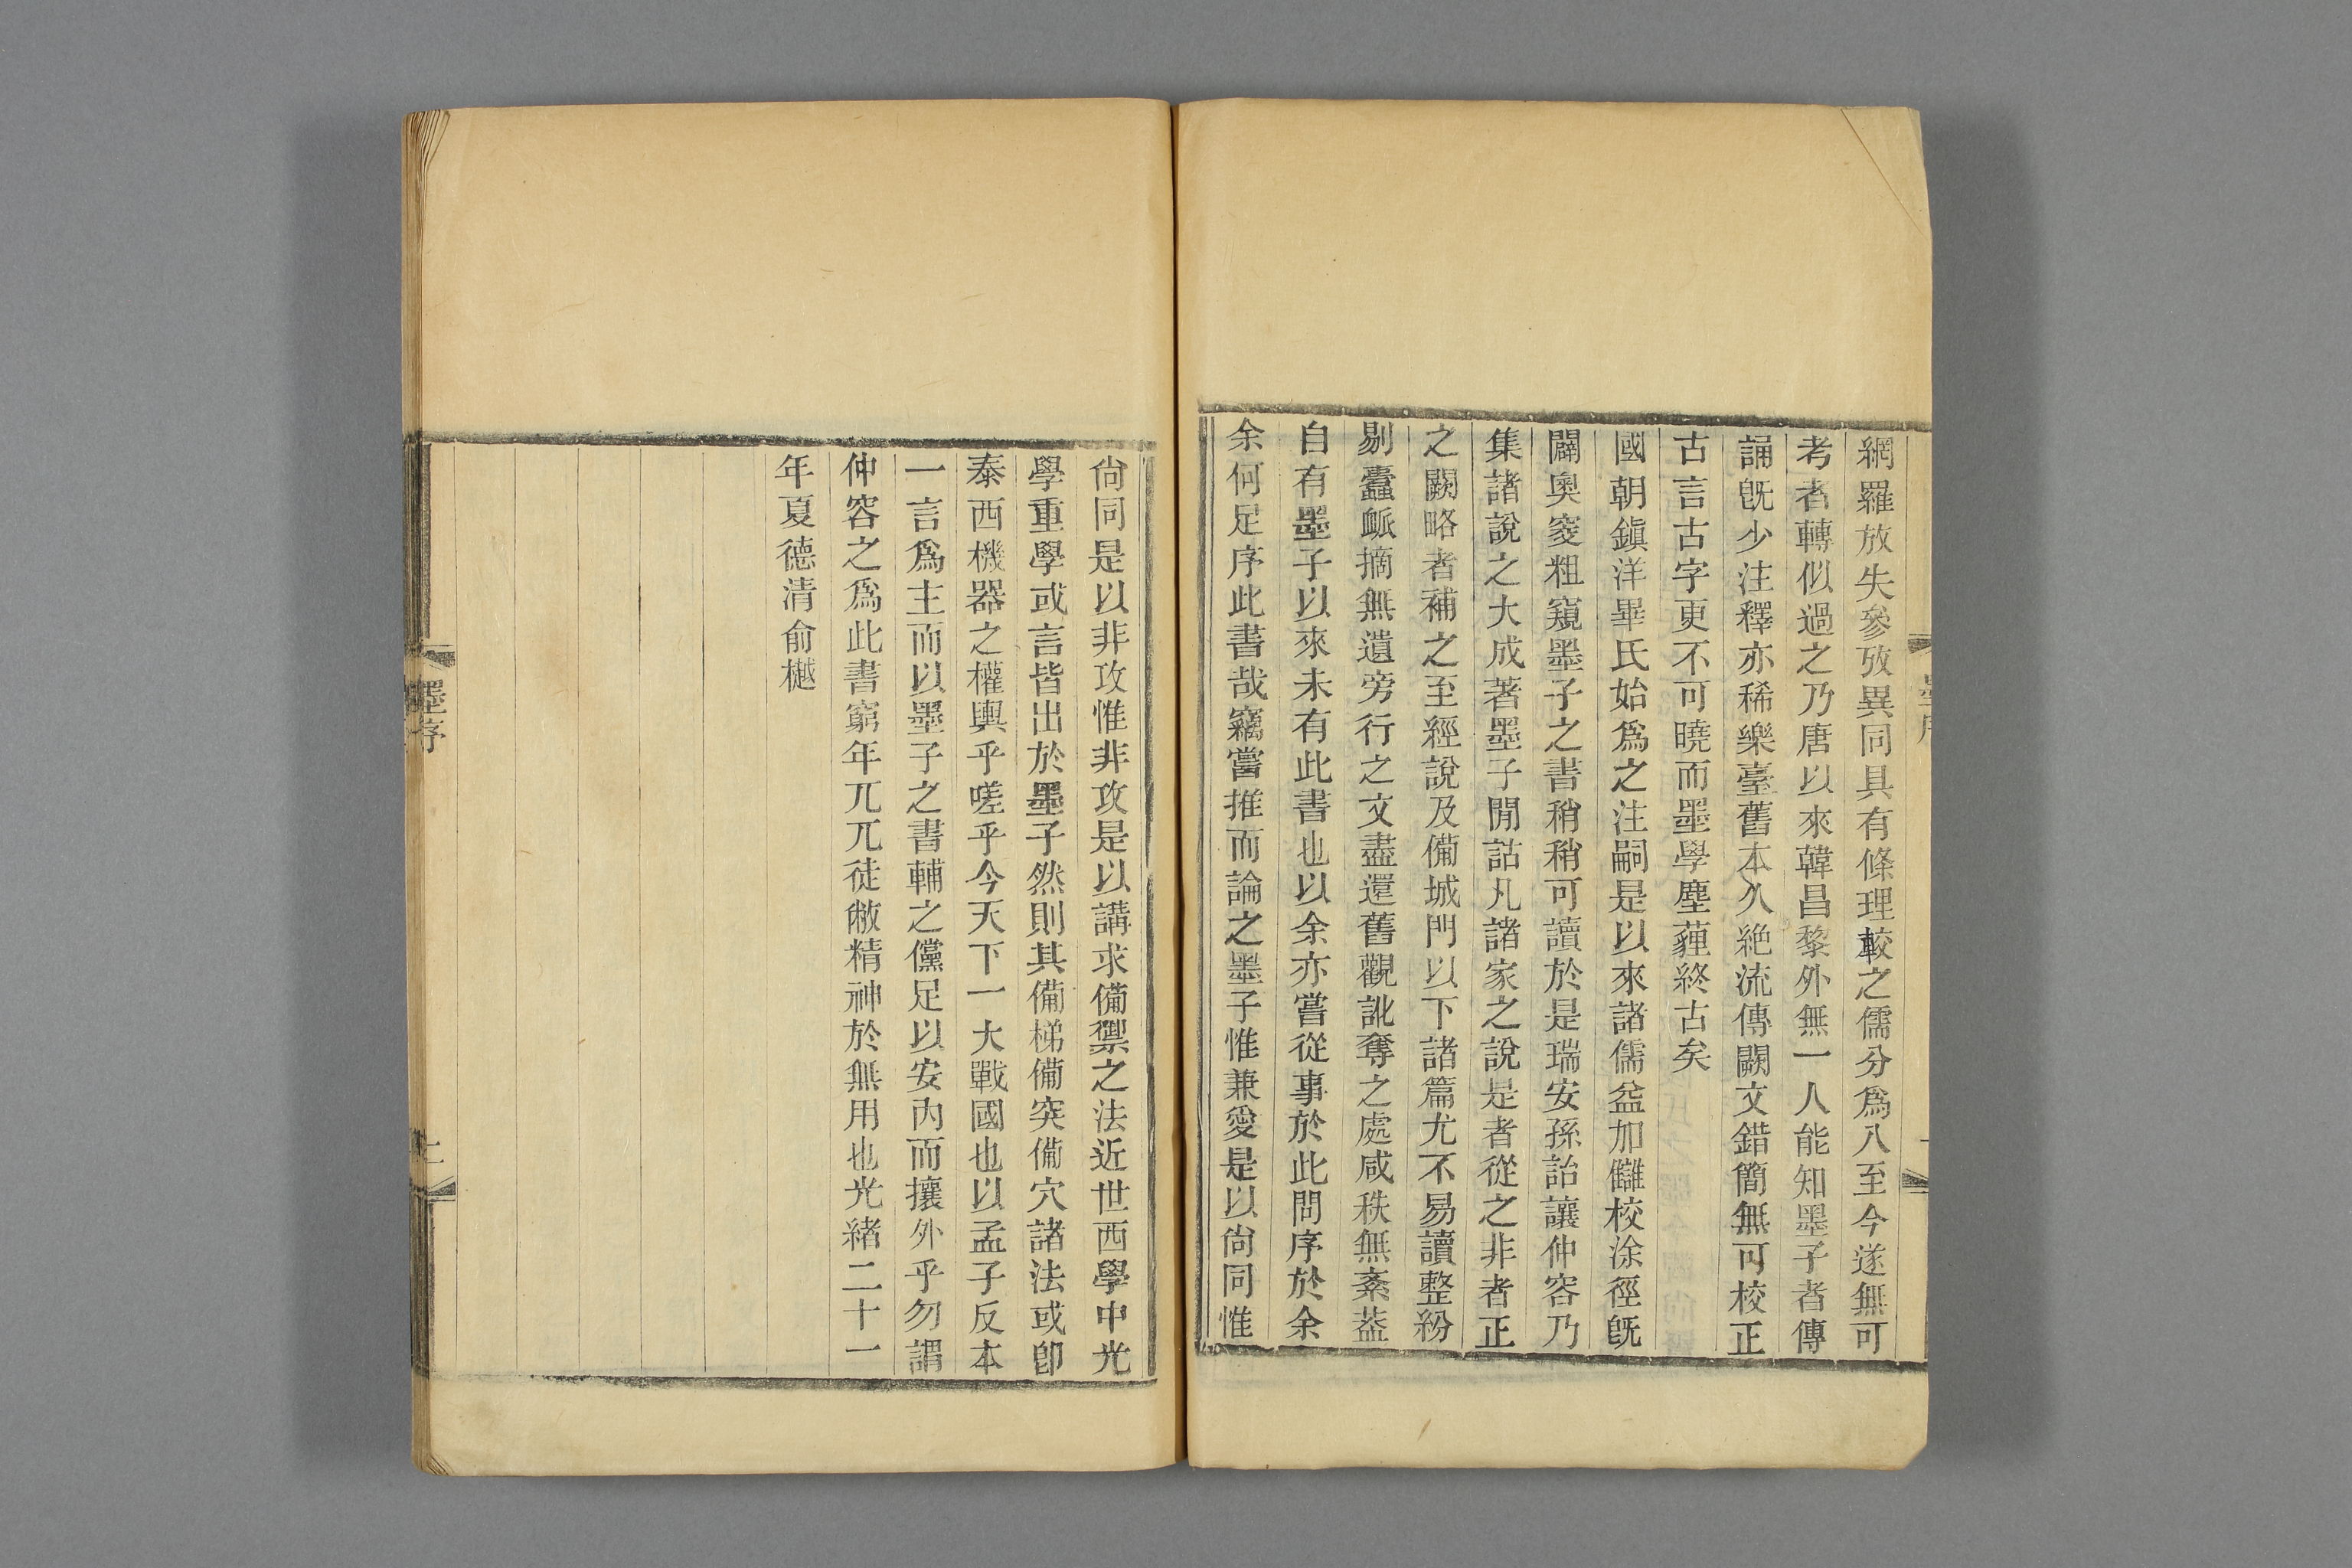 網羅放失參攷異同具有條理較之儒分爲八至今遂無可
考者轉似過之乃唐以來韓昌黎外無一人能知墨子者傳
誦旣少注釋亦稀樂臺舊本久絶流傳闕文錯簡無可校正
古言古字更不可曉而墨學塵薶終古矣
國朝鎭洋畢氏始爲之注嗣是以來諸儒益加讎校涂徑旣
闢奧窔粗窺墨子之書稍稍可讀於是瑞安孫詒讓仲容乃
集諸說之大成著墨子閒詁凡諸家之說是者從之非者正
之闕略者補之至經說及備城門以下諸篇尤不易讀整紛
剔蠹衇摘無遺旁行之文盡還舊觀訛奪之處咸秩無紊葢
自有墨子以來未有此書也以余亦嘗從事於此問序於余
余何足序此書哉竊嘗推而論之墨子惟兼愛是以尙同惟
尙同是以非攻惟非攻是以講求備禦之法近世西學中光
學重學或言皆出於墨子然則其備梯備突備穴諸法或卽
泰西機器之權輿乎嗟乎今天下一大戰國也以孟子反本
一言爲主而以墨子之書輔之儻足以安內而攘外乎勿謂
仲容之爲此書窮年兀兀徒敝精神於無用也光緒二十一
年夏德清俞樾
墨序